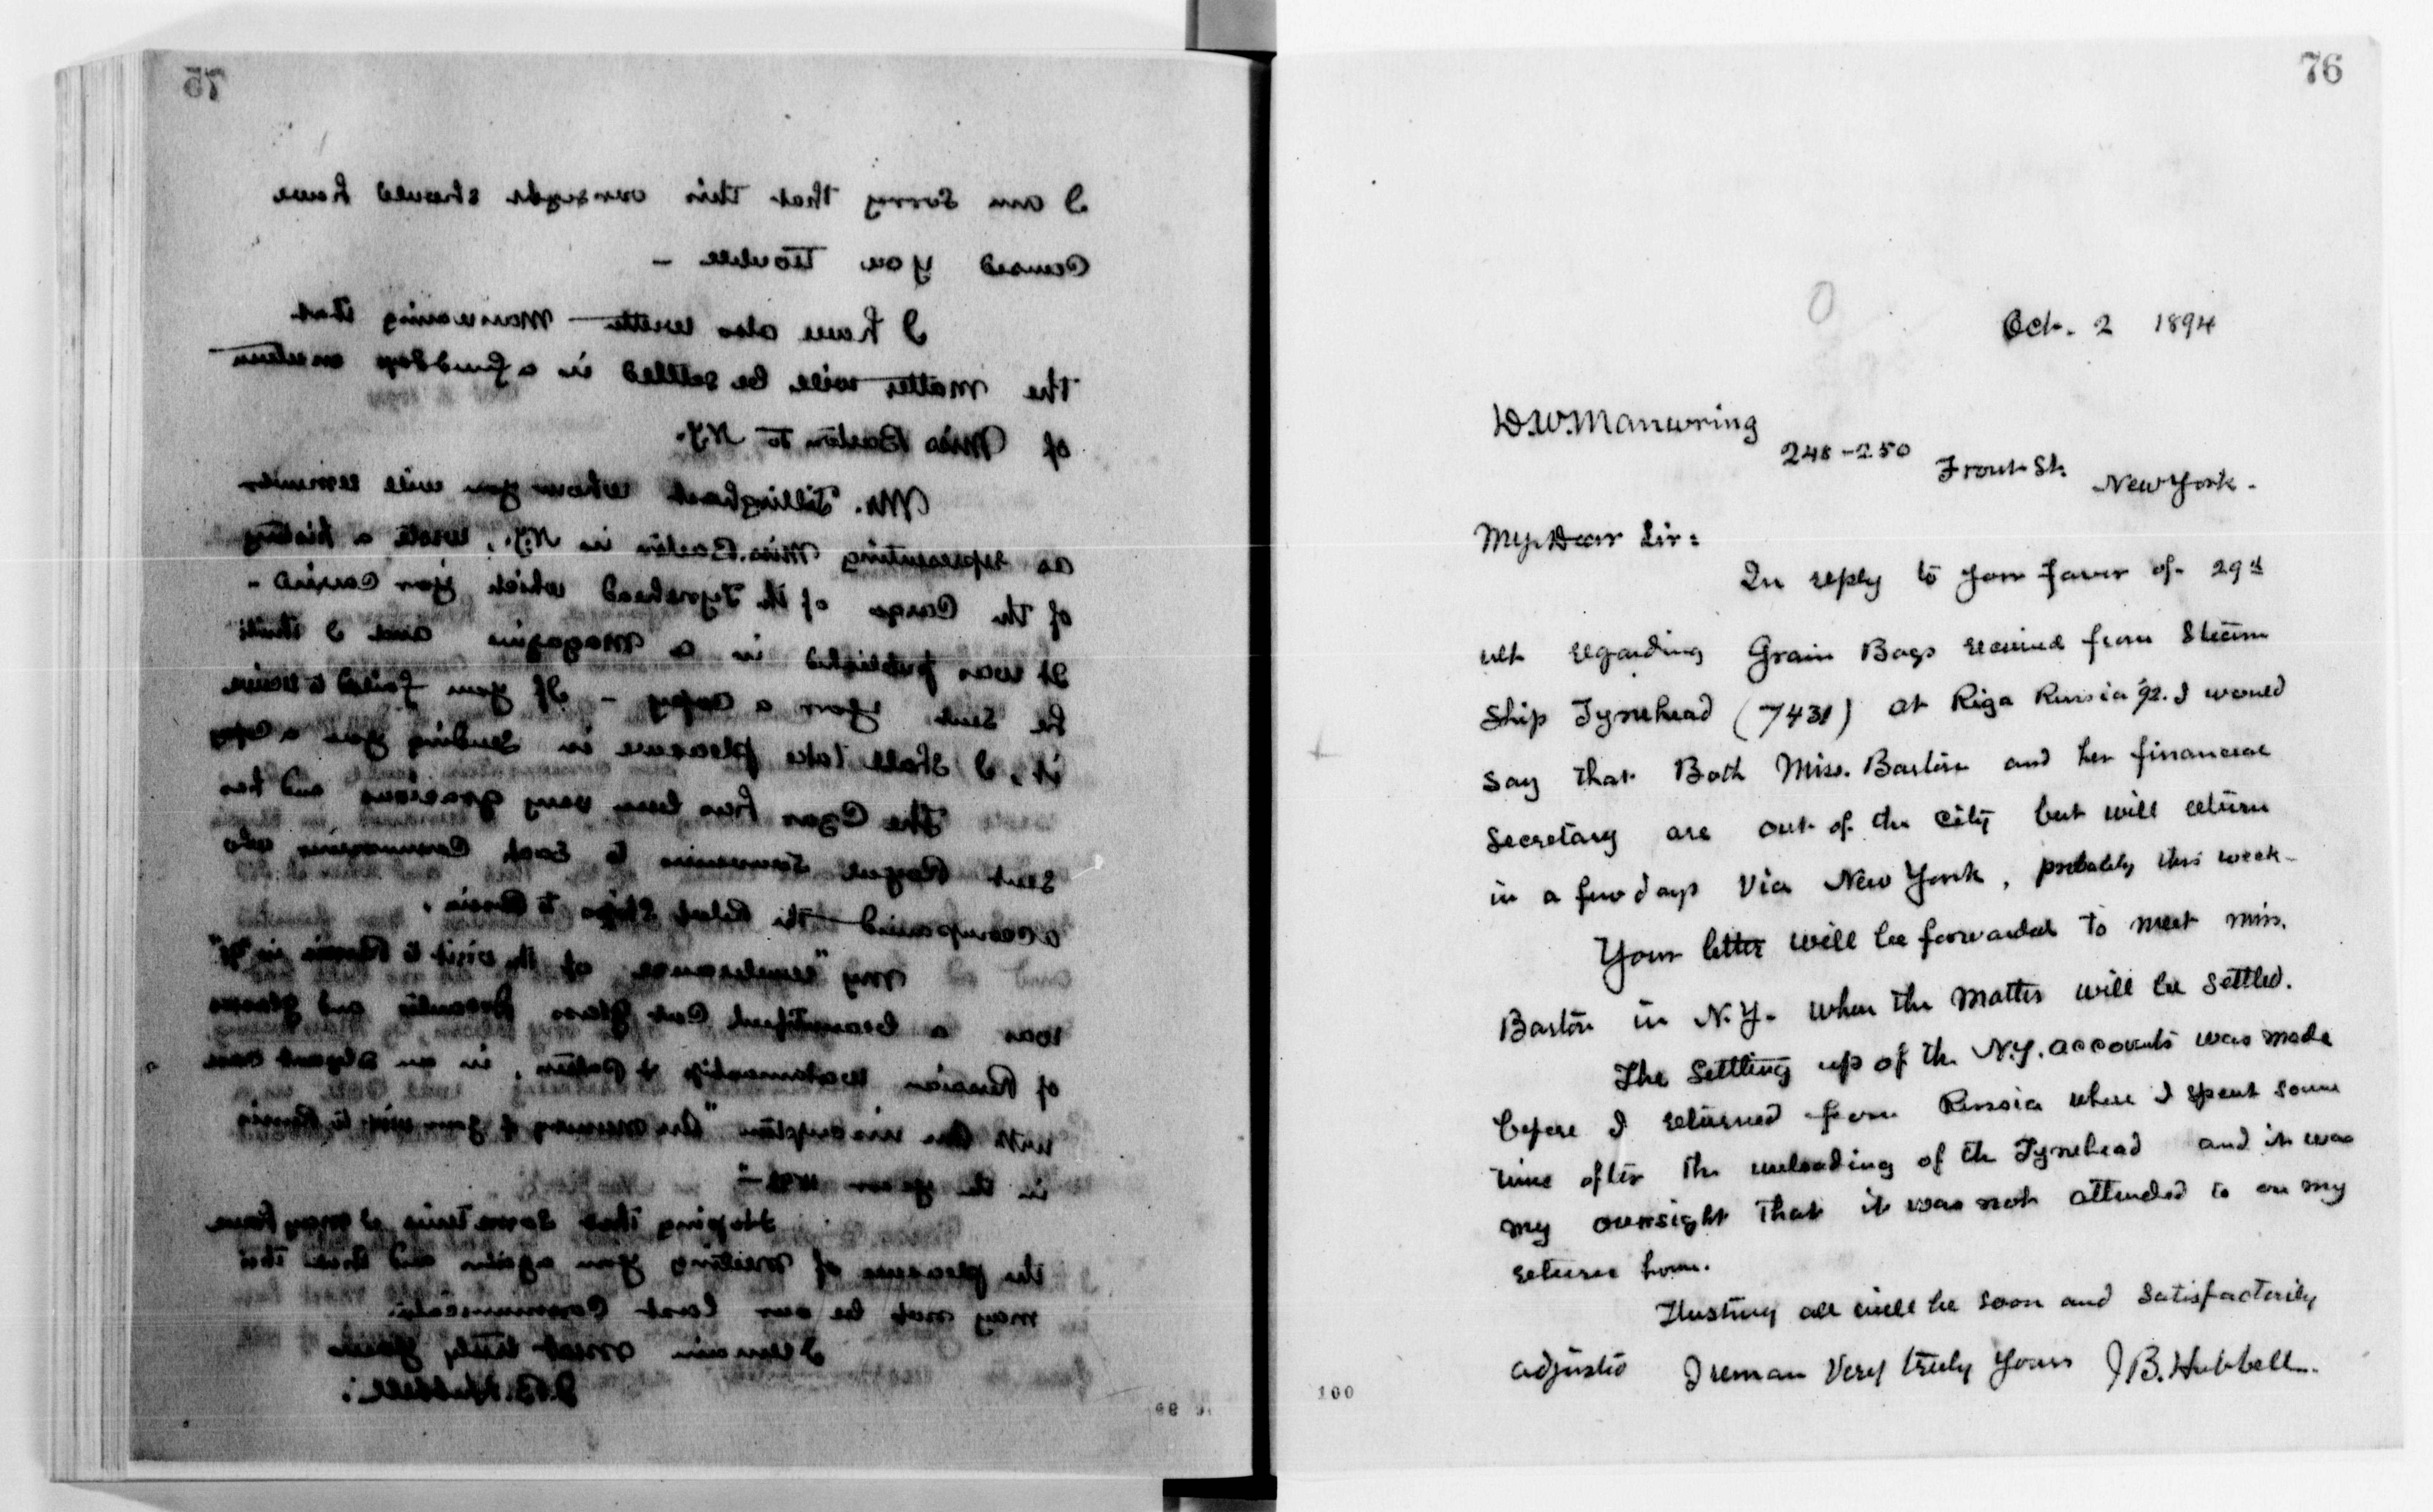 75
I am sorry that this oversight should have
caused you trouble -
I have also written Manwaring that
the matter will be settled in a few days on return
of Miss Barton to N.Y.
Mr. Tillinghast whom you will remember
as representing Miss. Barton in N.Y., wrote a history
of the Cargo of the Tynehead which you carried -
It was published in a Magazine and I think
he sent you a copy - If you failed to receive
it, I shall take pleasure in sending you a copy
The Czar has been very gracious and has
sent Royal souvenirs to each Commissioner who
accompanied the Relief Ships to Russia.
My "remembrance of the visit to Russia in '92"
was a beautiful Cut glass decanter and glasses
of Russian workmanship & pattern, in an elegant case
with the inscription "In memory of your visit to Russia
in the year 1892"-
Hoping that some time I may have
the pleasure of meeting you again and that this
may not be our last Communication
I remain most truly yours
J.B. Hubbell.
99
76
Oct. 2 1894
D.W. Manwring
248-250 Front St. New York.
My Dear Sir:
In reply to your favor of 29th
ult regarding Grain Bags received from Steam
Ship Tynehead (7431) at Riga Russia '92. I would
say that Both Miss. Barton and her financial
Secretary are out of the city but will return
in a few days via New York, probably this week-
Your letter will be forwarded to meet Miss.
Barton in N.Y. when the matter will be settled.
The settling up of the N.Y. accounts was made
before I returned from Russia where I spent some
time after the unloading of the Tynehead and it was
my oversight that it was not attended to on my
return home.
Trusting all will be soon and satisfactorily
adjusted I reman Very truly yours J.B. Hubbell.
100